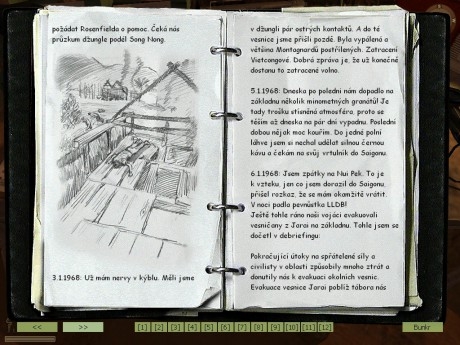 požádat Rosenfielda o pomoc. Čeká nás
průzkum džungle podél Song Nong.
3.1.1968: Už mám nervy v kýblu. Měli jsme
v džungli pár ostrých kontaktů. A do té
vesnice jsme přišli pozdě. Byla vypálená a
většina Montagnardů postřílených. Zatracení
Vietcongové. Dobrá zpráva je, že už konečně
dostanu to zatracené volno.
5.1.1968: Dneska po polední nám dopadlo na
základnu několik minometných granátů! Je
tady trošku stísněná atmosféra, proto se
těším až dneska na pár dní vypadnu. Poslední
dobou nějak moc kouřím. Do jedné polní
láhve jsem si nechal udělat silnou černou
kávu a čekám na svůj vrtulník do Saigonu.
6.1.1968: Jsem zpátky na Nui Pek. To je
k vzteku, jen co jsem dorazil do Saigonu,
přišel rozkaz, že se mám okamžitě vrátit.
V noci padla pevnůstka LLDB!
Ještě tohle ráno naši vojáci evakuovali
vesničany z Jarai na základnu. Tohle jsem se
dočetl v debriefingu:
Pokračující útoky na spřátelené síly a
civilisty v oblasti způsobily mnoho ztrát a
donutily nás k evakuaci okolních vesnic.
Evakuace vesnice Jarai poblíž tábora nás
<< >> [1] [2] [3] [4] [5] [6] [7] [8] [9] [10] [11] [12] Bunkr